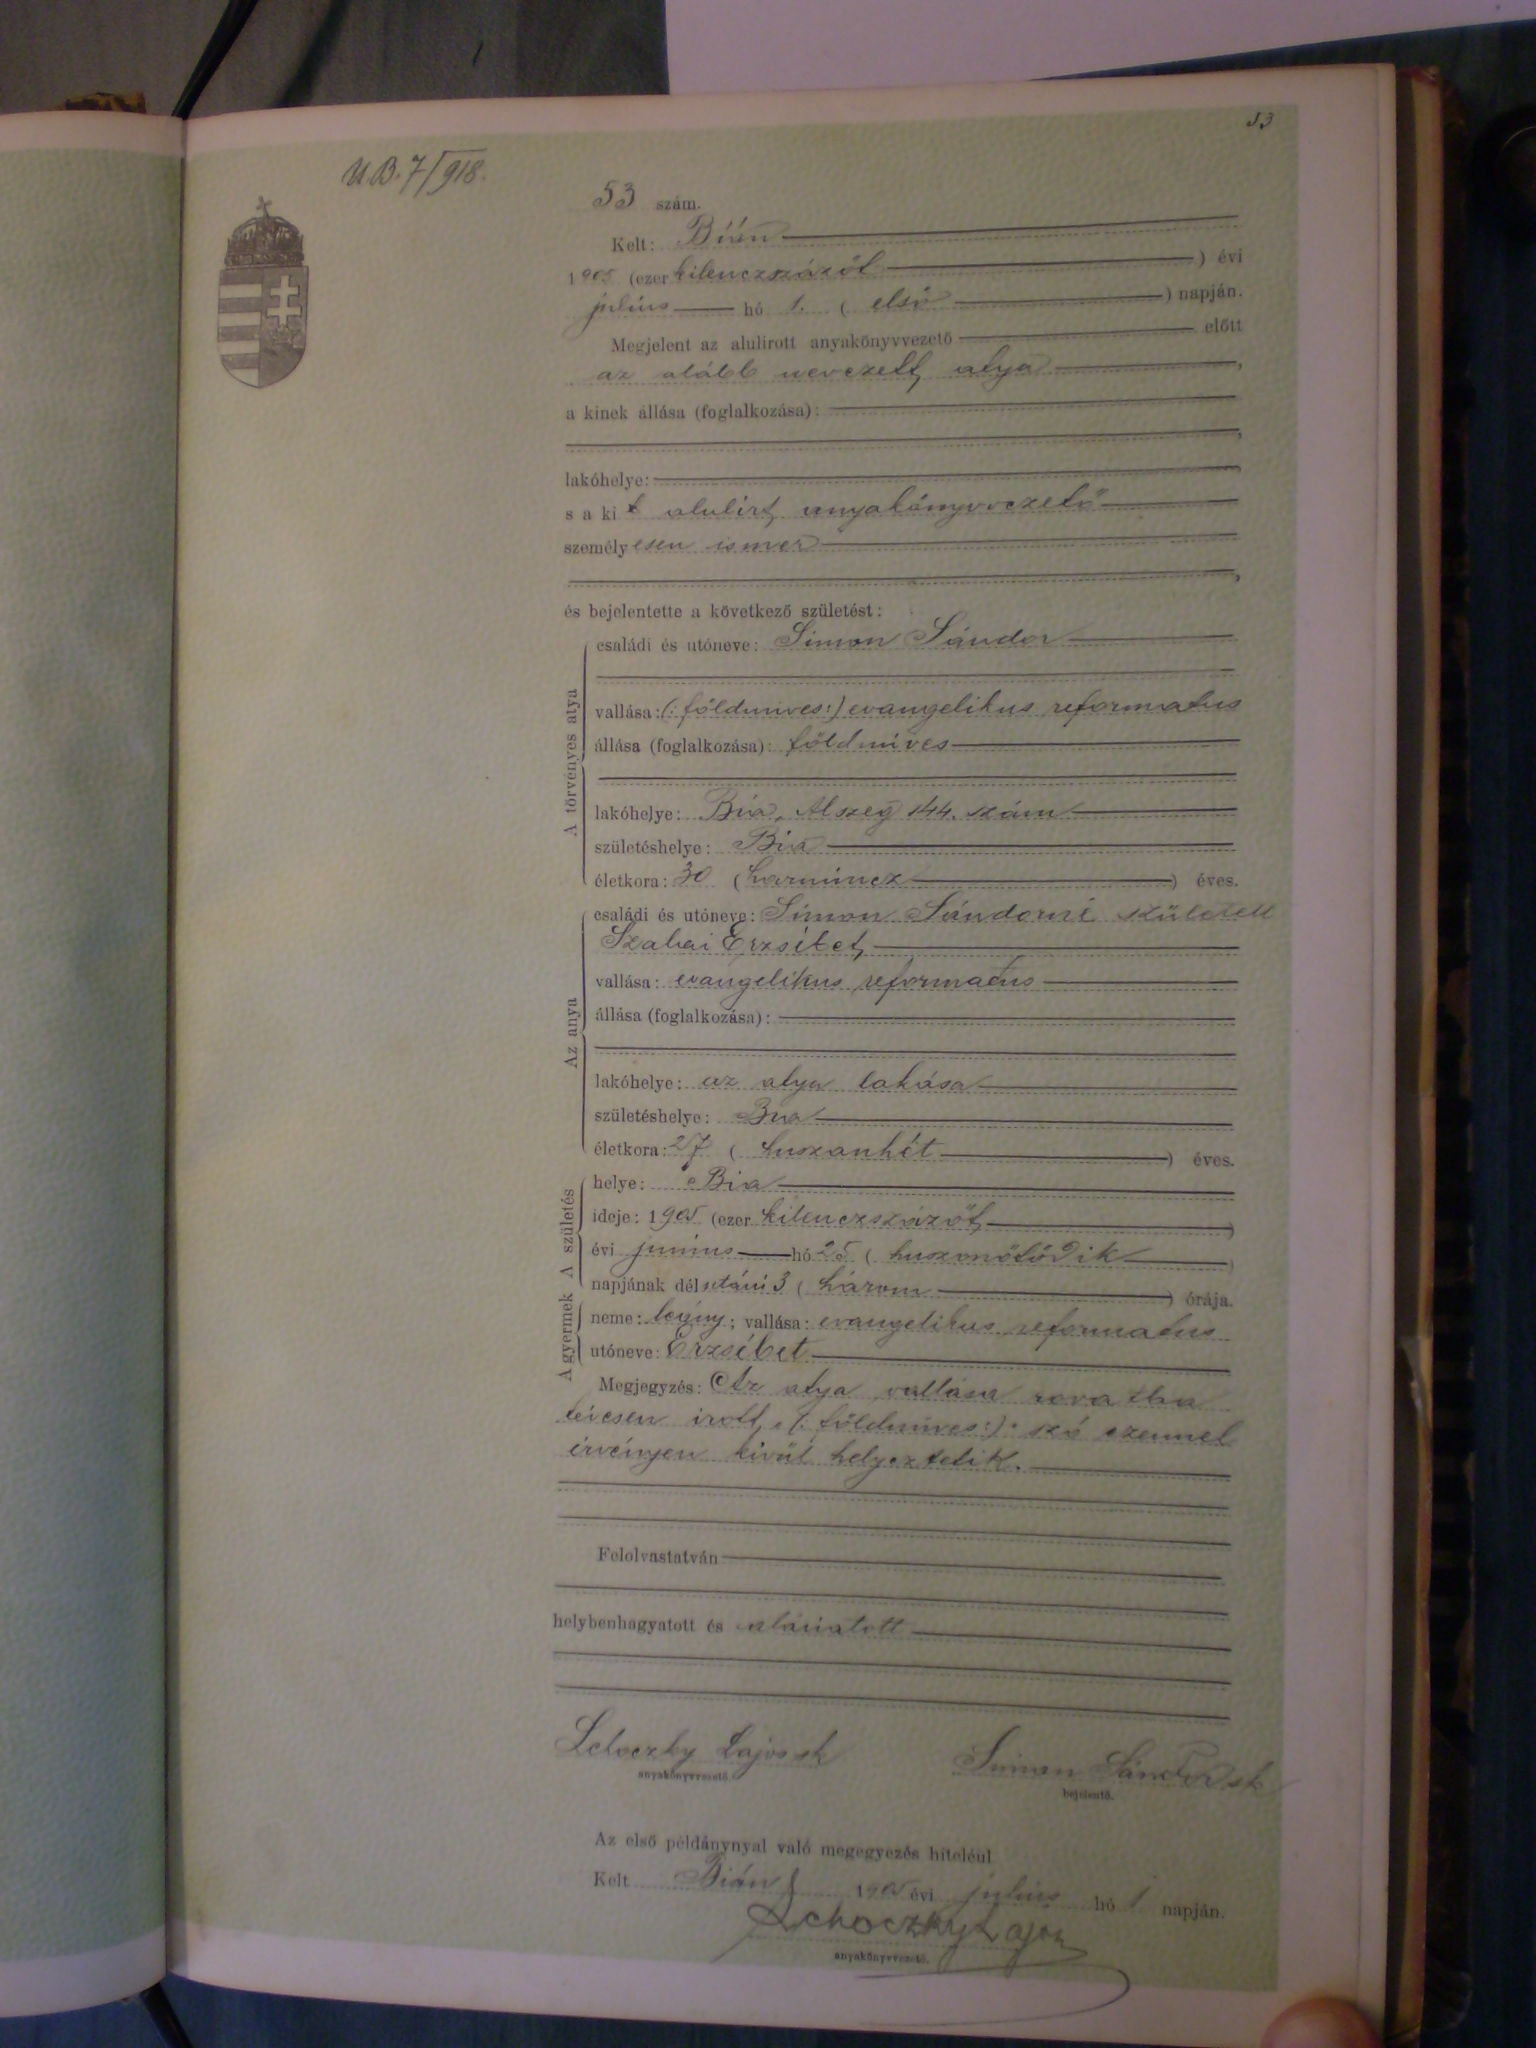 53
U.B. 7/918.
53 szám.
Kelt: Bián
1905 (ezer kilenczszázöt) évi
julius hó 1. (első) napján.
Megjelent az alulirott anyakönyvvezető előtt
az alább nevezett atya,
a kinek állása (foglalkozása):
lakóhelye:
s a kit alulirt anyakönyvvezető
személyesen ismer,
és bejelentette a következő születést:
A törvényes atya
családi és utóneve: Simon Sándor
vallása: (:földmives:) evangelikus reformatus
állása (foglalkozása): földmives
lakóhelye: Bia, Alszeg 144. szám
születéshelye: Bia
életkora: 30 (harmincz) éves.
Az anya
családi és utóneve: Simon Sándorné született
Erzsébet
vallása: evangelikus reformatus
állása (foglalkozása):
lakóhelye: az atya lakása
születéshelye: Bia
életkora: 27 (huszanhét) éves.
A születés
helye: Bia
ideje: 1905 (ezer kilenczszázöt)
évi junius hó 25 (huszonötödik)
napjának délutáni 3 (három) órája.
A gyermek
neme: leány; vallása: evangelikus reformatus
utóneve: Erzsébet
Megjegyzés: Az atya vallása rovatba
tévesen irott "(:földmives:)" szó ezennel
érvényen kivül helyeztetik.
Felolvastatván
helybenhagyatott és aláiratott
Lajos sk
anyakönyvvezető.
Simon Sándor sk
bejelentő.
Az első példánynyal való megegyezés hiteléül
Kelt Bián 1905 évi julius hó 1 napján.
Lajos
anyakönyvvezető.